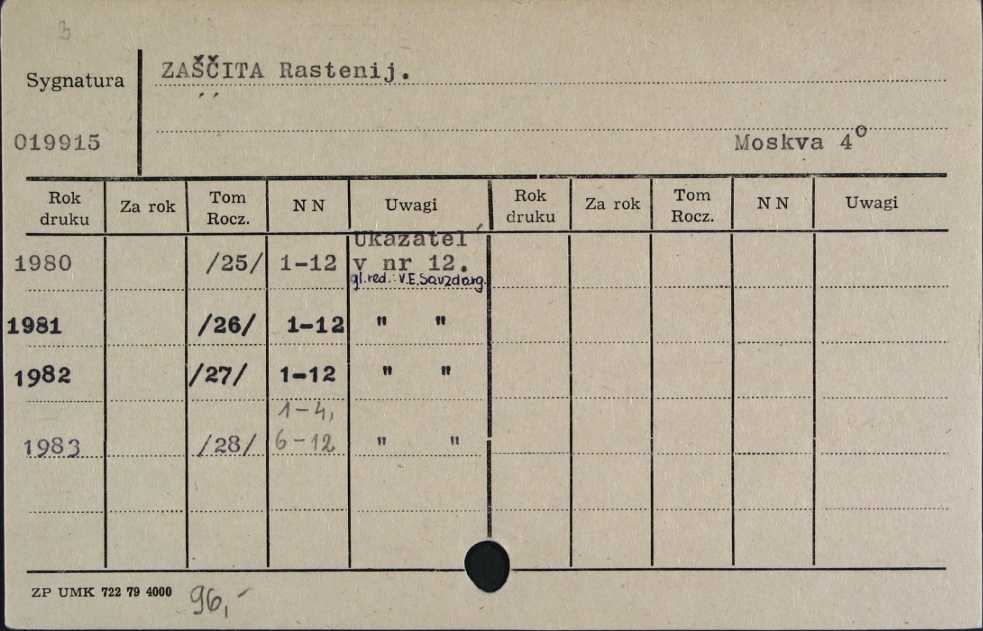 3
Sygnatura
ZAŠČITA Rastenij.
019915
Moskva 4°
Rok druku Za rok Tom Rocz. N N Uwagi Rok druku Za rok Tom Rocz. N N Uwagi
1980 /25/ 1-12 Ukazatel' v nr 12.
gl.red.: V.E.Savzdarg.
1981 /26/ 1-12 " "
1982 /27/ 1-12 " "
1-4,
1983 /28/ 6-12 " "
ZP UMK 722 79 4000 96,-